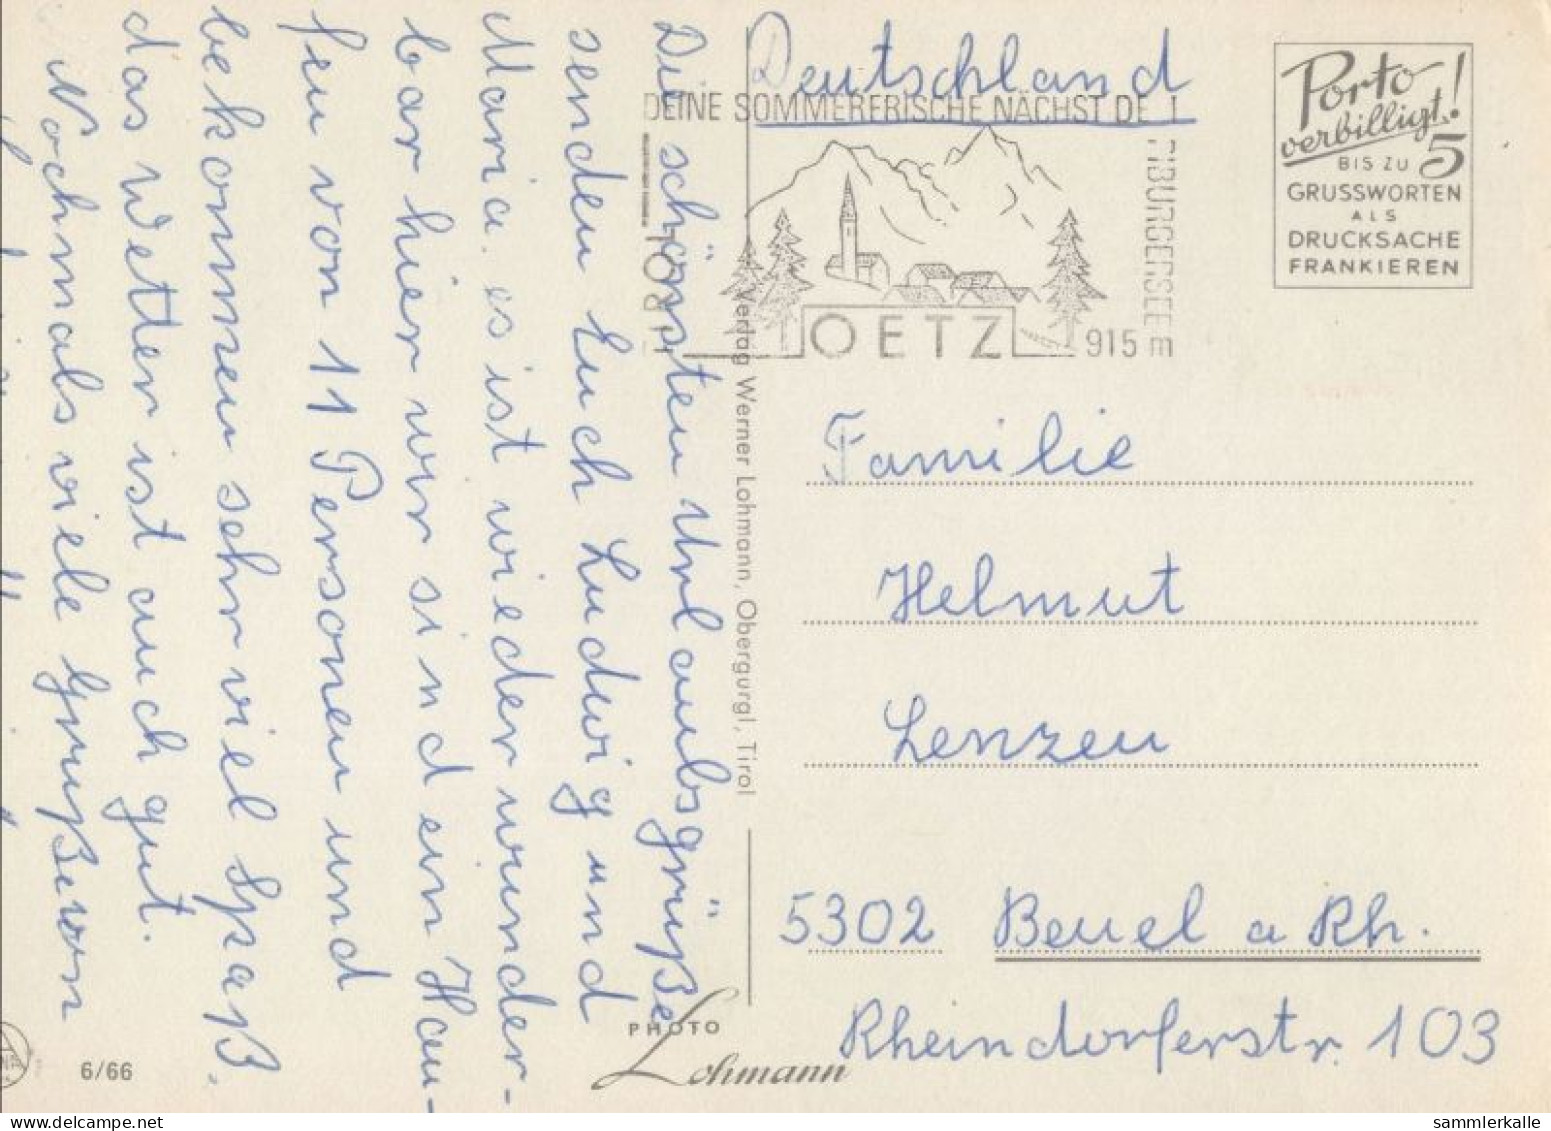 Die schönsten Urlaubsgrüße
senden Euch Ludwig und
Maria. es ist wieder wunder-
bar hier wir sind ein Hau-
fen von 11 Personen und
bekommen sehr viel Spaß.
das Wetter ist auch gut.
Nochmals viele Grüße von
6/66
Verlag Werner Lohmann, Obergurgl, Tirol
PHOTO
Lohmann
Deutschland
DEINE SOMMERFRISCHE NÄCHST DE
PIBURGERSEE
OETZ
915 m
Porto
verbilligt!
BIS ZU 5
GRUSSWORTEN
ALS
DRUCKSACHE
FRANKIEREN
Familie
Helmut
Lenzen
5302 Beuel a Rh.
Rheindorferstr. 103
sammlerkalle